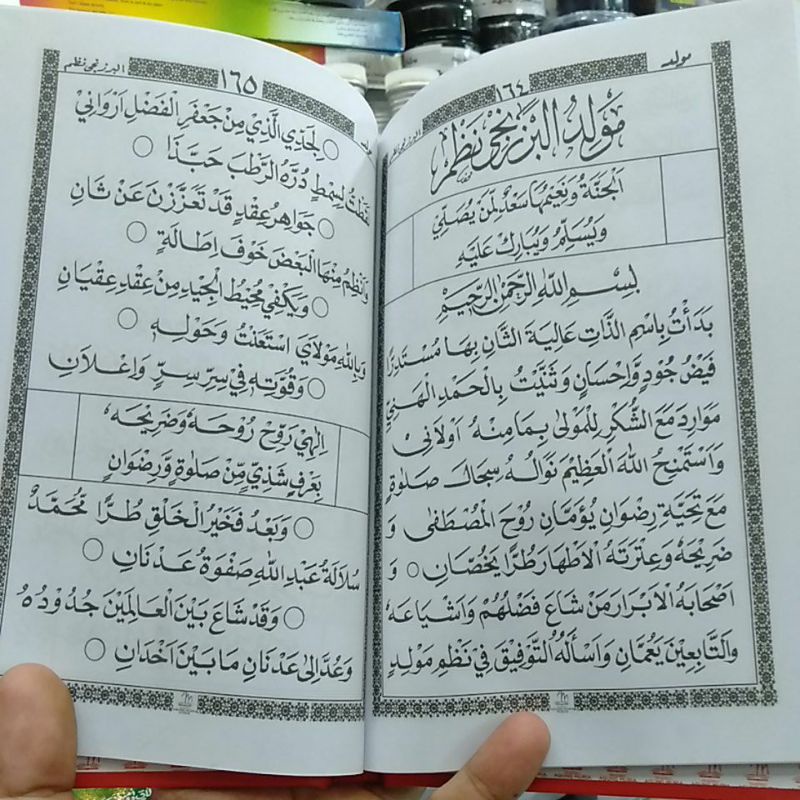 مولد
١٦٤
مَوْلِدُ الْبَرْزَنْجِيْ نَظَمْ
اَلْجَنَّةُ وَنَعِيْمُهَا سَعْدٌ لِمَنْ يُصَلِّيْ
وَيُسَلِّمُ وَيُبَارِكُ عَلَيْهِ
بِسْمِ اللهِ الرَّحْمٰنِ الرَّحِيْمِ
بَدَأْتُ بِاسْمِ الذَّاتِ عَالِيَةِ الشَّانِ بِهَا مُسْتَدِرًّا
فَيْضَ جُوْدٍ وَّاِحْسَانٍ وَثَنَّيْتُ بِالْحَمْدِ الْهَنِيْ
مَوَارِدَ مَعَ الشُّكْرِ لِلْمَوْلٰى بِمَا مِنْهُ اَوْلَانِيْ
وَاَسْتَمْنِحُ اللهَ الْعَظِيْمَ نَوَالَهُ سِجَالَ صَلٰوةٍ
مَعَ تَحِيَّةِ رِضْوَانٍ يُؤَمَّانِ رُوْحَ الْمُصْطَفٰى وَ
ضَرِيْحَهُ وَعِتْرَتَهُ الْاَطْهَارَ طُرًّا يَخُصَّانِ ○ وَ
اَصْحَابَهُ الْاَبْرَارَ مَنْ شَاعَ فَضْلُهُمْ وَاَشْيَاعَهُ
وَالتَّابِعِيْنَ يَعُمَّانِ وَاَسْأَلُهُ التَّوْفِيْقَ فِيْ نَظْمِ مَوْلِدٍ
البرزنجي نظم
١٦٥
○ لِجَدِّي الَّذِيْ مِنْ جَعْفَرِ الْفَضْلِ اَرْوَانِيْ
لِسِمْطٍ دُرُّهُ الرَّطْبُ حَبَّذَا ○
○ جَوَاهِرُ عِقْدٍ قَدْ تَعَزَّزْنَ عَنْ ثَانِ
وَاَنْظِمُ مِنْهَا الْبَعْضَ خَوْفَ اِطَالَةٍ ○
○ وَيَكْفِيْ مُحِيْطُ الْجِيْدِ مِنْ عِقْدِ عِقْيَانِ
وَبِاللهِ مَوْلَايَ اسْتَعَنْتُ وَحَوْلِهِ ○
○ وَقُوَّتِهِ فِيْ سِرِّ سِرٍّ وَاِعْلَانِ
اِلٰهِيْ رَوِّحْ رُوْحَهُ وَضَرِيْحَهُ
بِعَرْفٍ شَذِيٍّ مِّنْ صَلٰوةٍ وَّرِضْوَانِ
○ وَبَعْدُ فَخَيْرُ الْخَلْقِ طُرًّا مُحَمَّدٌ
سُلَالَةُ عَبْدِ اللهِ صَفْوَةُ عَدْنَانِ ○
○ وَقَدْ شَاعَ بَيْنَ الْعَالَمِيْنَ جُدُوْدُهُ
وَعُدَّ اِلٰى عَدْنَانِ مَا بَيْنَ اَخْدَانِ ○